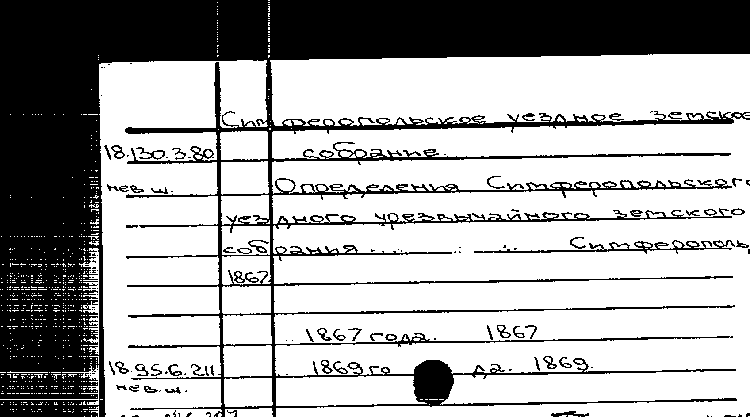 Симферопольское уездное земское
18.130.3.80 собрание.
нев ш. Определения Симферопольского
уездного чрезвычайного земского
собрания ..... : ... Симферополь,
1867.
1867 года. 1867
18.95.6.211. 1869 го да. 1869.
нев.ш.